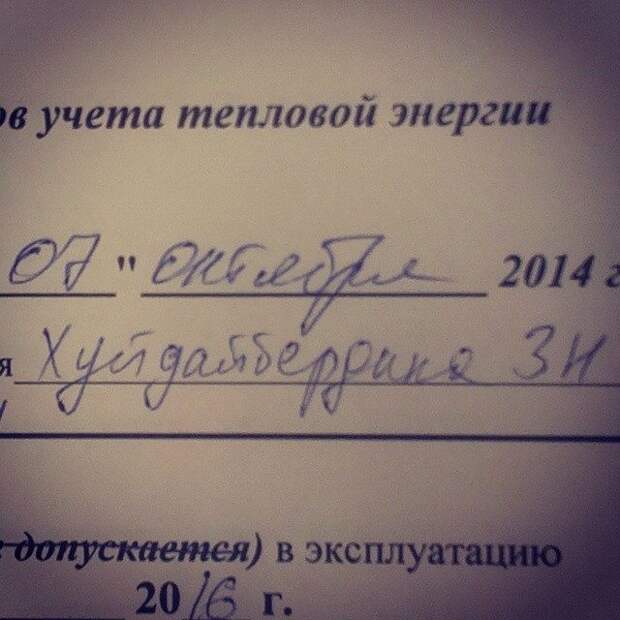 ов учета тепловой энергии
07 " октября 2014 г
я Хуйдайбердина ЗН
е допускается) в эксплуатацию
2016 г.